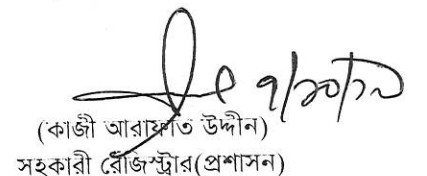 ৭/১০/১২
(কাজী আরাফাত উদ্দীন)
সহকারী রেজিস্ট্রার(প্রশাসন)